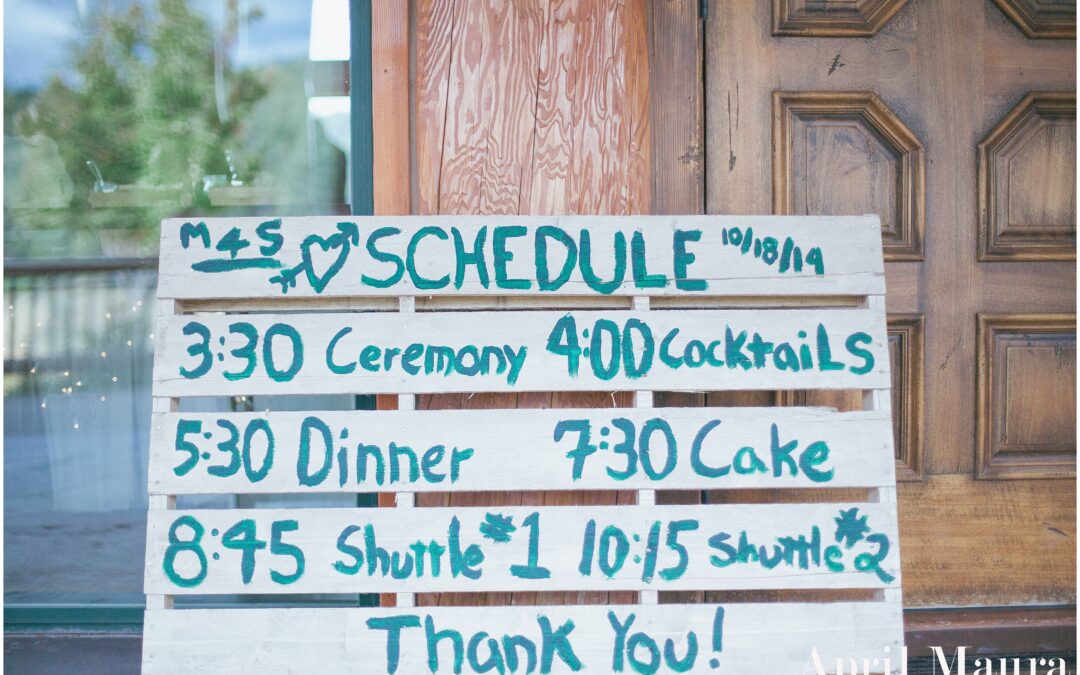 M & S SCHEDULE 10/18/14
3:30 Ceremony 4:00 Cocktails
5:30 Dinner 7:30 Cake
8:45 Shuttle #1 10:15 Shuttle #2
Thank You!
April Maura